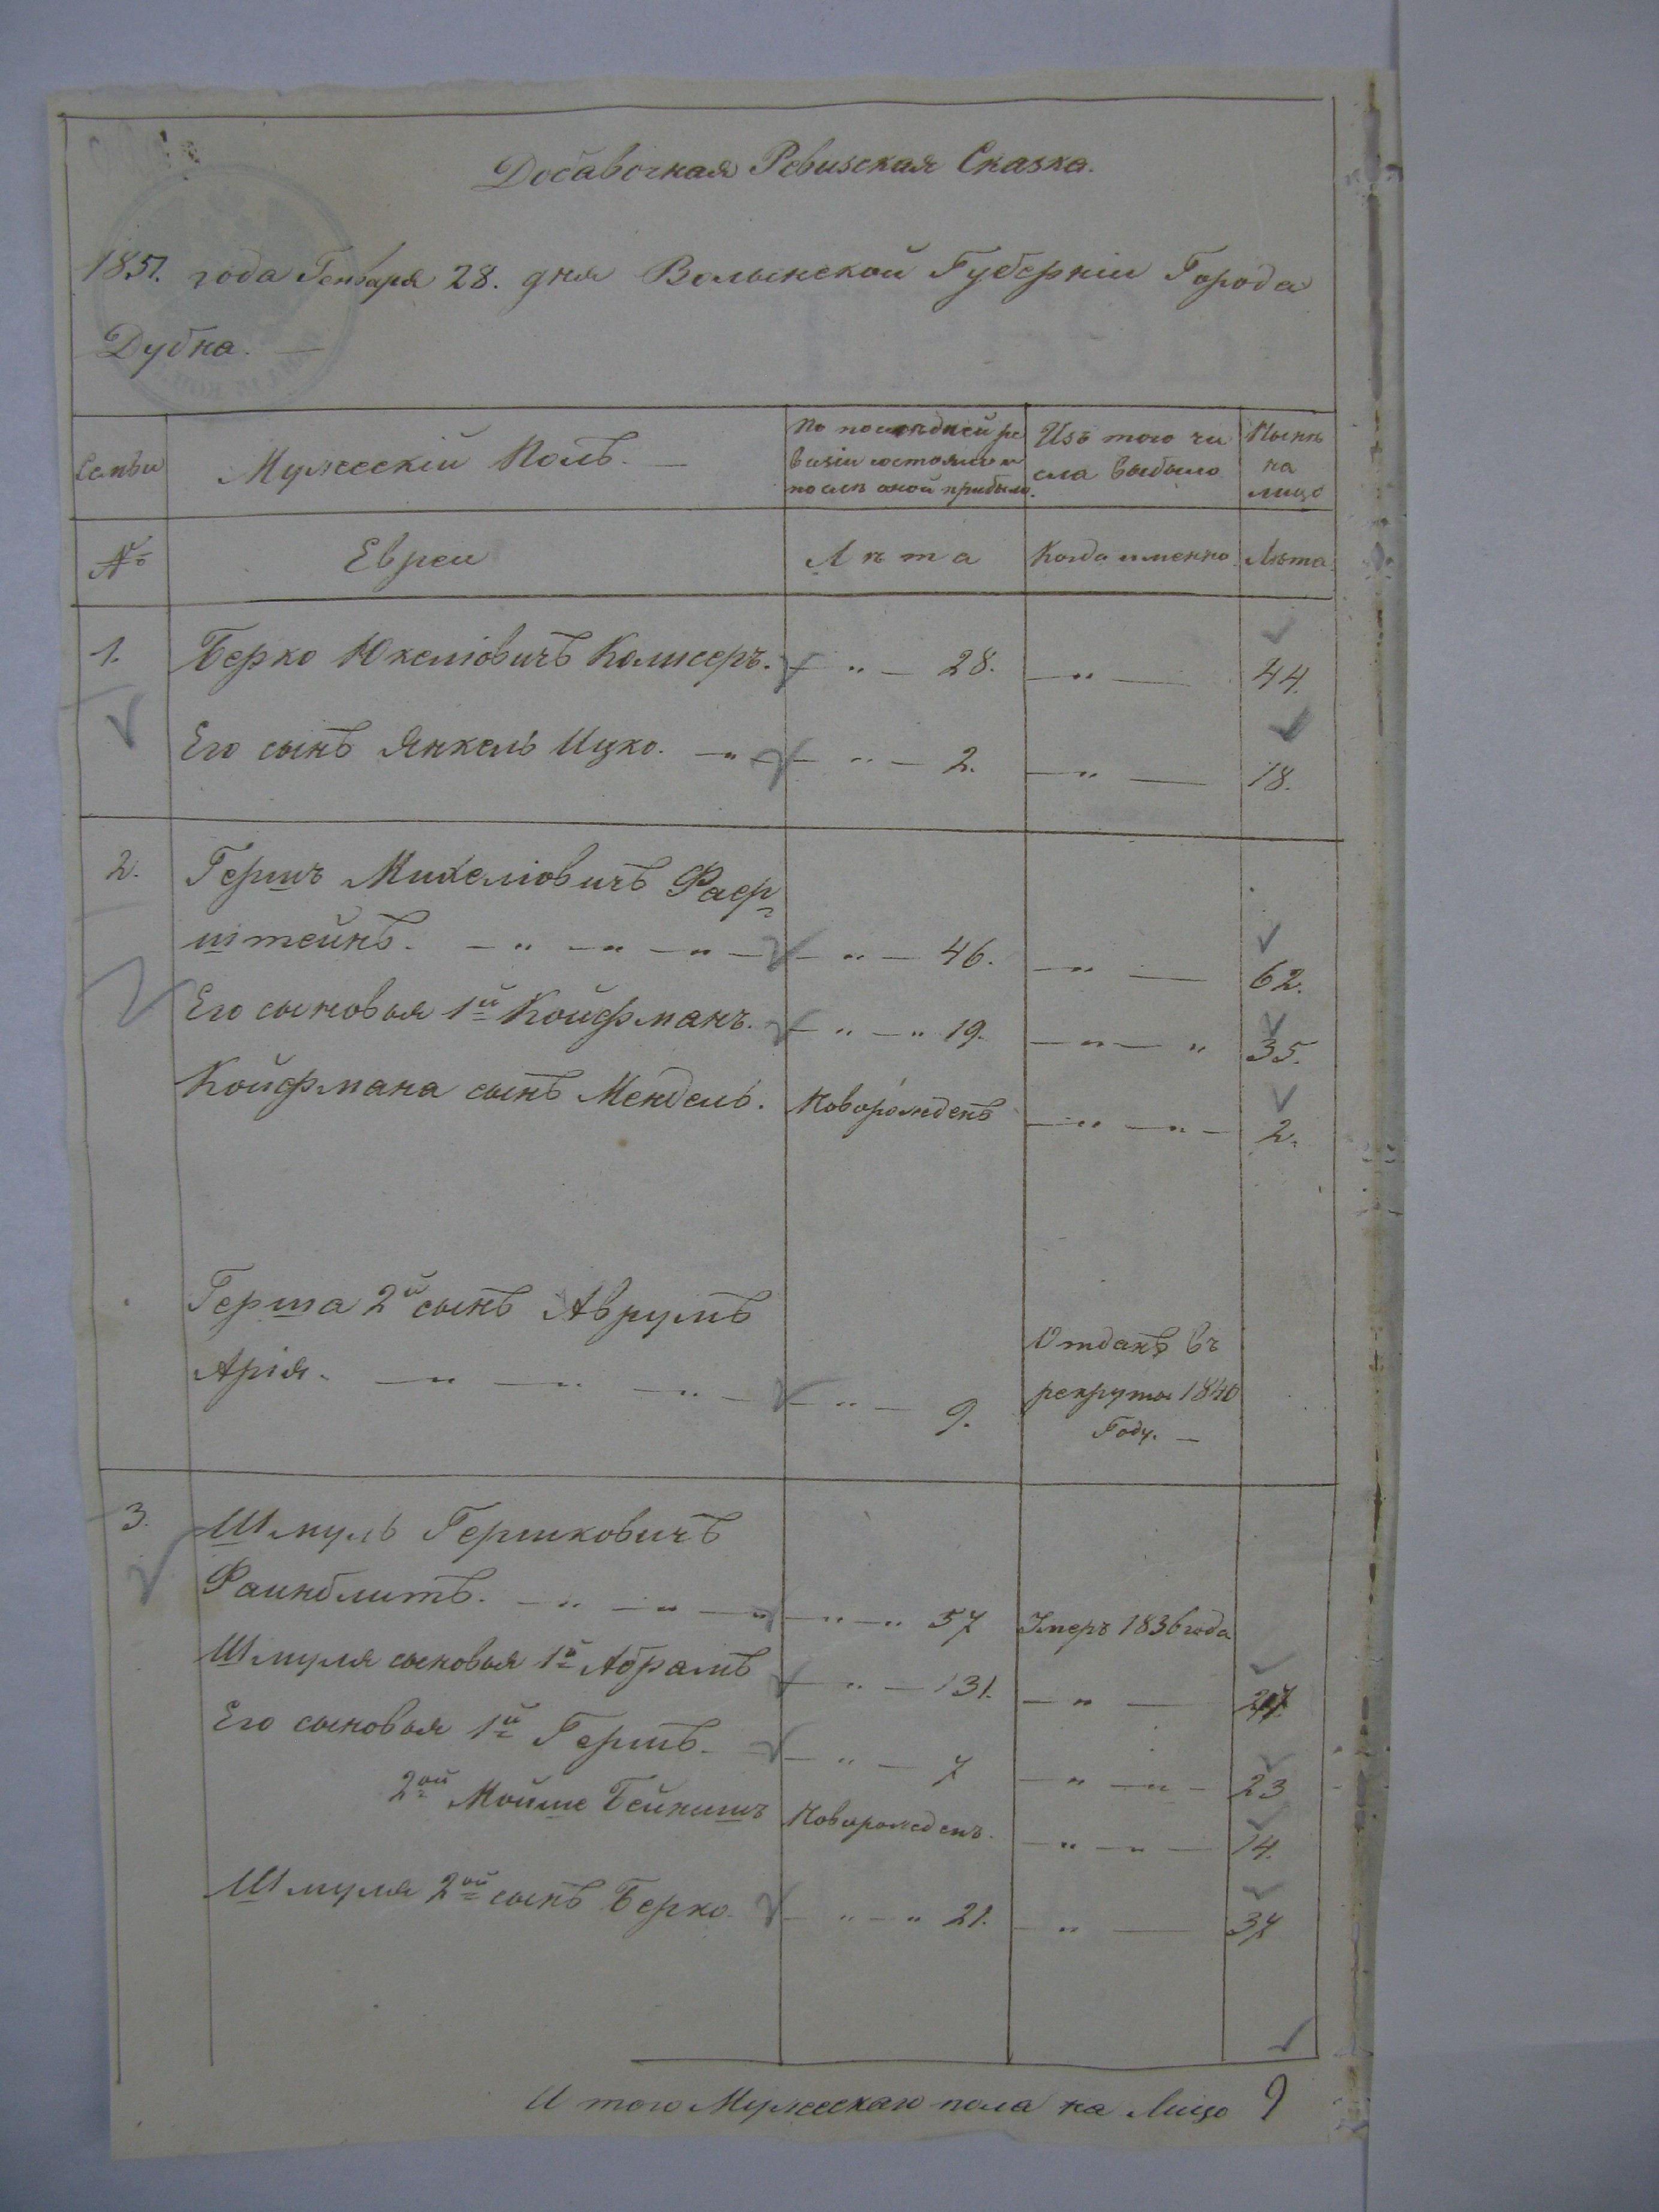 Добавочная Ревизская Сказка.
1851. года Генваря 28. дня Волынской Губерніи Города
Дубна. —
Семьи
Мужескій Полъ. —
По последней ре
визіи состояло и
после оной прибыло.
Изъ того чи
сла выбыло
Ныне
на
лицо
№
Евреи
Лета
Когда именно
Лета
1. Берко Юкеліовичъ Колкеръ. — " — 28. — " — 44.
Его сынъ Янкель Ицко. — " — " — 2. — " — 18.
2. Гершъ Михеліовичъ Фаер
штейнъ. — " — " — " — " — 46. — " — 62.
Его сыновья 1й Койфманъ. — " — " 19. — " — " 35.
Койфмана сынъ Мендель. Новорожденъ — " — " — 2.
Герша 2й сынъ Аврумъ
Арія. — " — " — " — " — 9. Отданъ въ
рекруты 1840
Году. —
3. Шмуль Гершковичъ
Фаинблитъ. — " — " — " — " — " 57 Умеръ 1836 года
Шмуля сыновья 1й Абрамъ — " — 31. — " —
Его сыновья 1й Гершъ. — " — 7 — " — " — 23
2ой Мойше Бейнишъ Новорожденъ. — " — " — 14.
Шмуля 2ой сынъ Берко — " — " 21. — " — 37
И того Мужескаго пола на Лицо 9